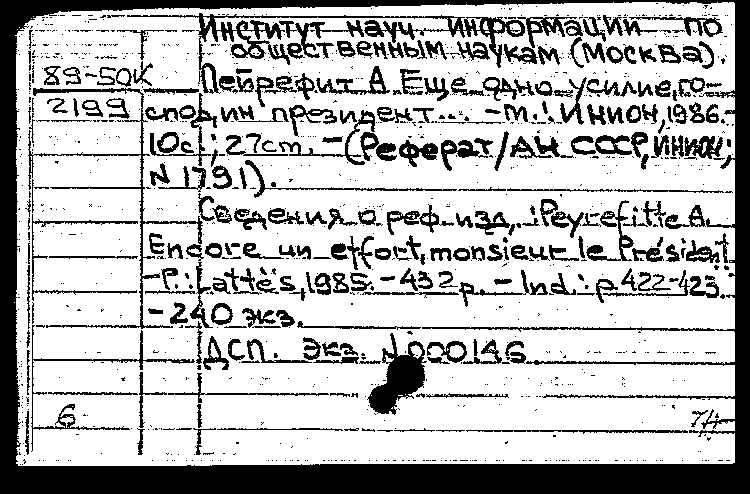 Институт науч. информации по
общественным наукам (Москва).
89-50К
Пейрефит А. Еще одно усилие, го-
2199
сподин президент... - М.: ИНИОН, 1986.-
10с.; 27cm. - (Реферат/АН СССР, ИНИОН;
N 1791).
Сведения о реф. изд.: Peyrefitte A.
Encore un effort, monsieur le Président
-P.: Lattès, 1985. - 432 p. - Ind.: p 422-423.
- 240 экз.
ДСП. Экз. N 000146
6